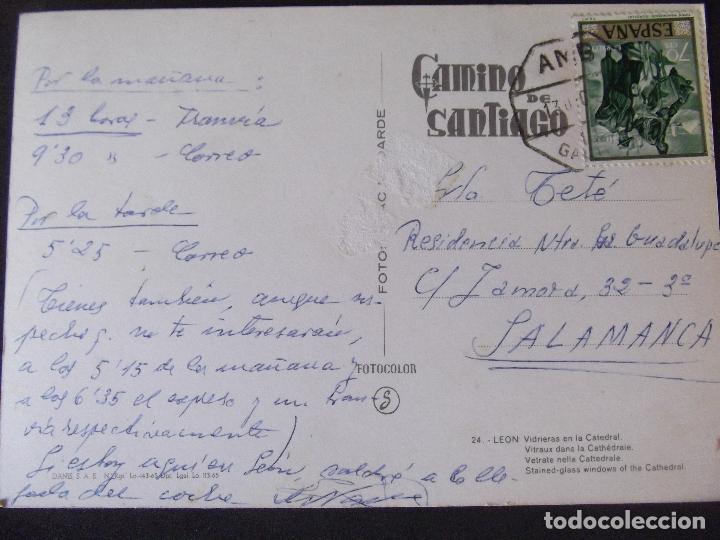 Por la mañana:
13 horas - Tranvía
9'30 " - Correo
Por la tarde
5'25 - Correo
(Tienes también, aunque sos-
pecho q. no te interesarán,
a las 5'15 de la mañana y
a las 6'35 el expreso y un tran-
vía respectivamente)
Si estoy aquí en León, saldré a
del coche.
CAMINO
DE
SANTIAGO
ESPAÑA
70
AMB
Srta Teté
Residencia Ntra Sra Guadalupe
C/ Zamora, 32-3º
SALAMANCA
FOTOCOLOR
24. - LEON: Vidrieras en la Catedral.
Vitraux dans la Cathédrale.
Vetrate nella Cattedrale.
Stained-glass windows of the Cathedral.
todocoleccion.net